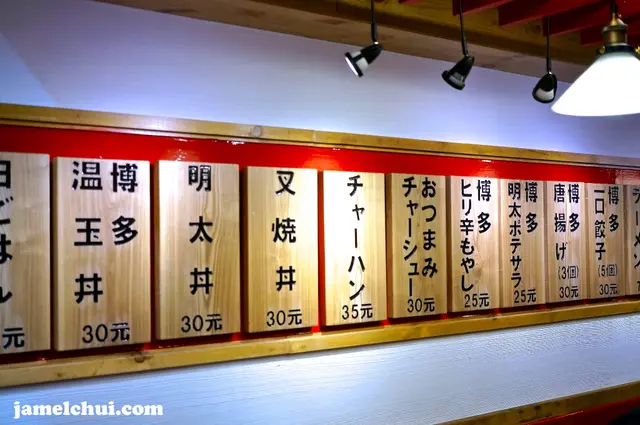 博多
一口餃子
(5個)
30元
博多
唐揚げ
(3個)
30元
博多
明太ポテサラ
25元
博多
ピリ辛もやし
25元
おつまみ
チャーシュー
30元
チャーハン
35元
叉焼丼
30元
明太丼
30元
博多
温玉丼
30元
元
jamelchui.com